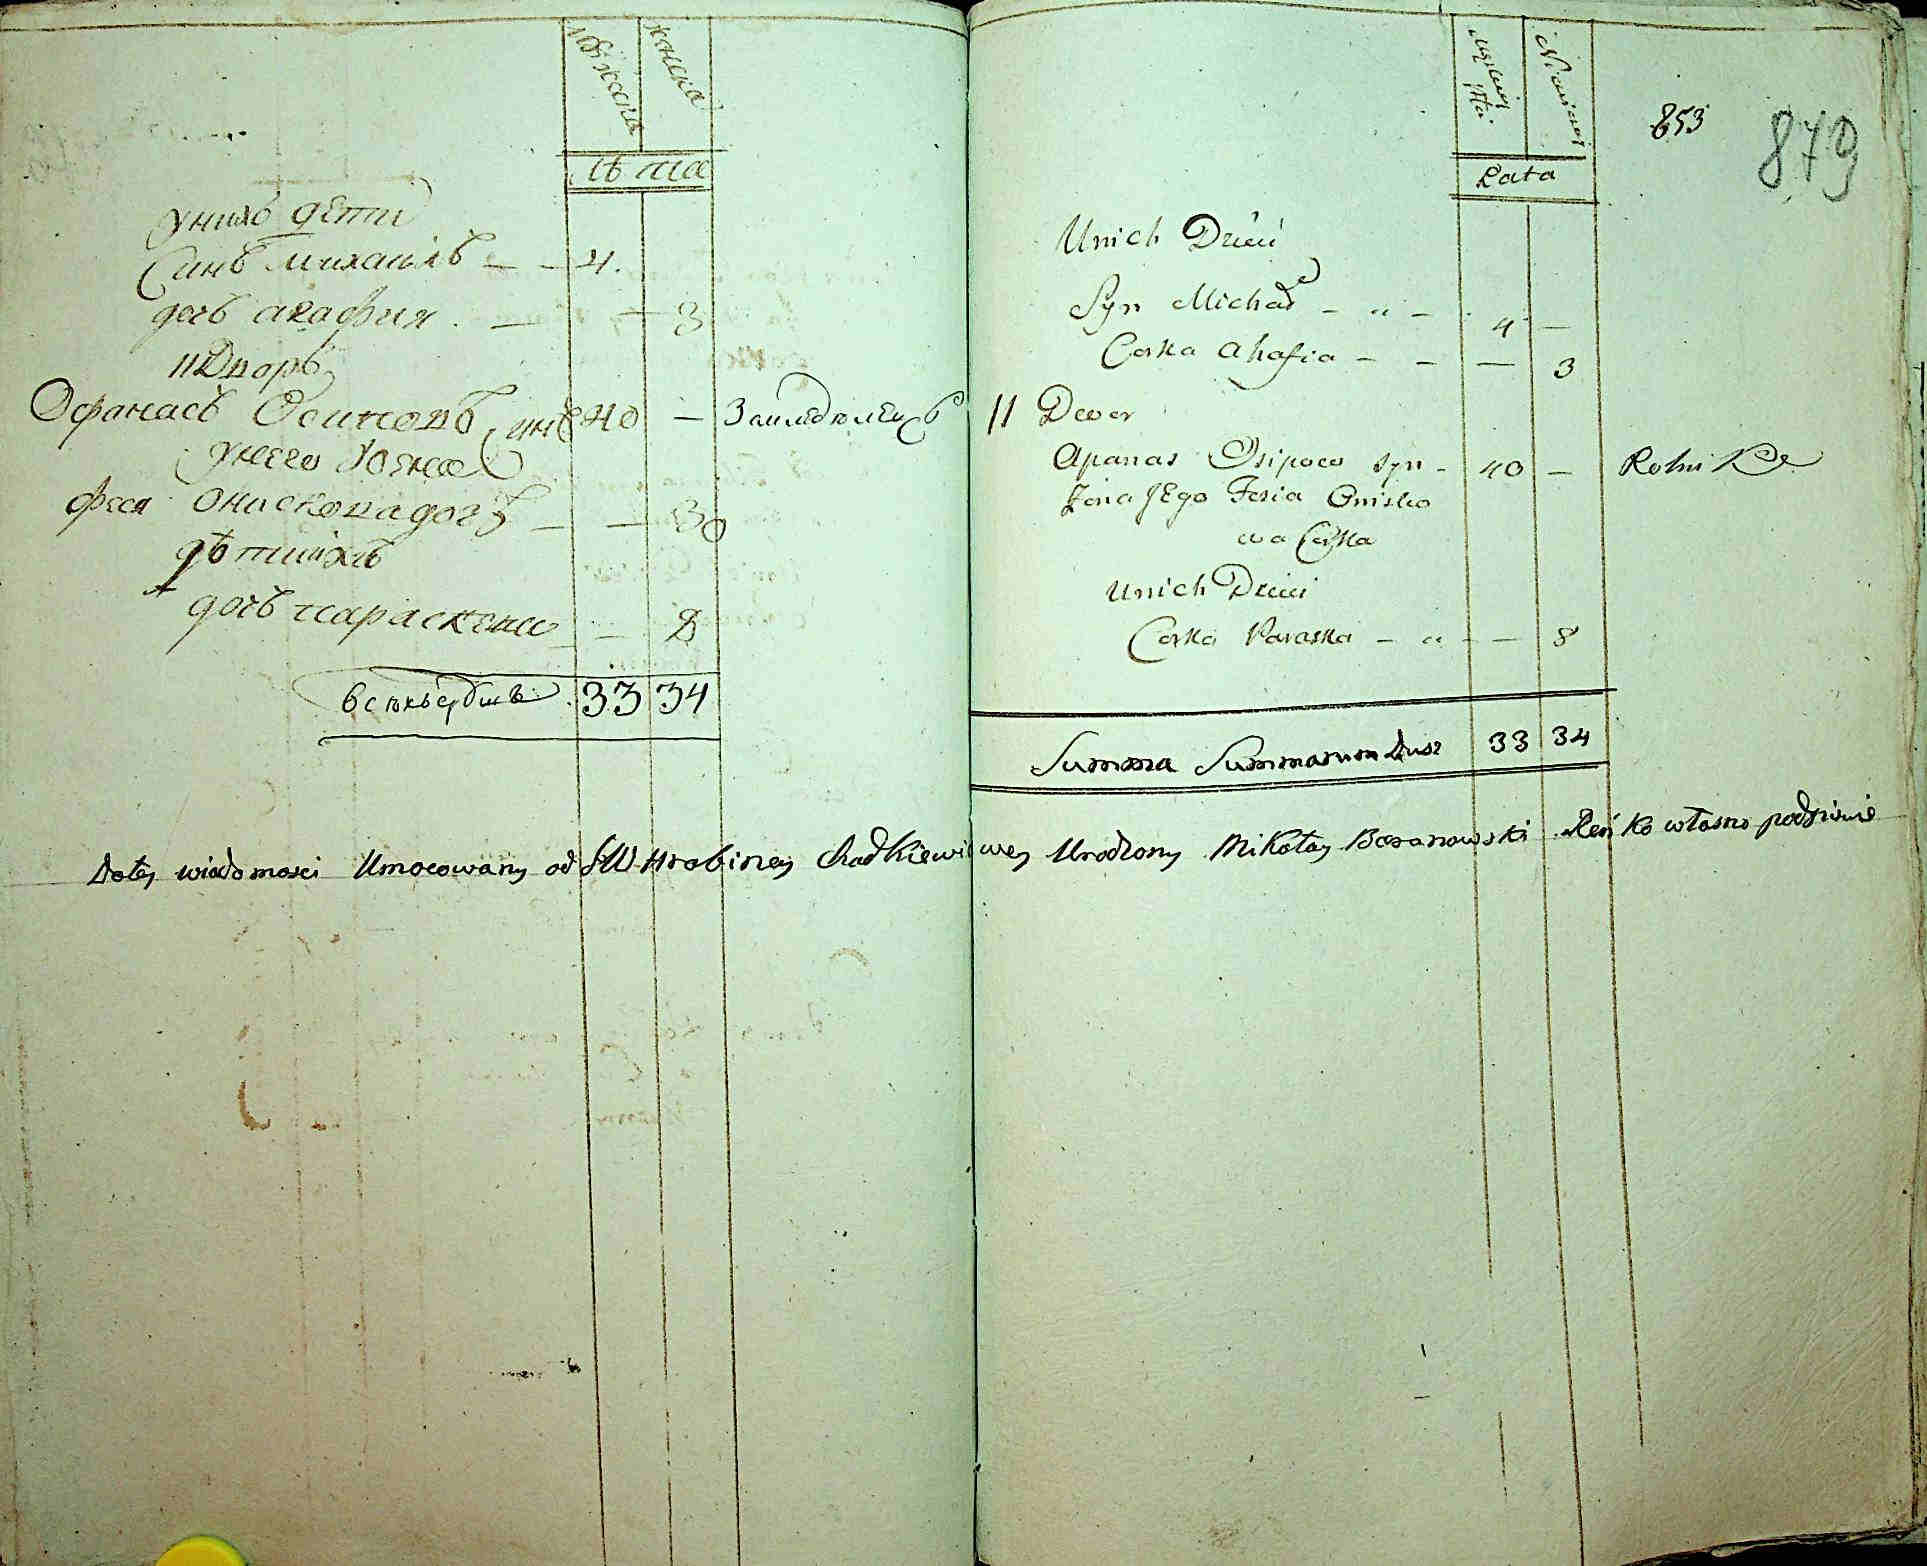 мужеска
женска
лѣта
у нихъ дети
Синъ михаилъ — — 4.
дочь агафия . — — 3
11 Дворъ
Офанасъ Осиповъ синъ 40 — Землѣд
у него жена
феся Онискова дочь — — 30
дѣти ихъ
дочь параскева — 8
33 34
Męskiej płci
Niewiast
853
879
Lata
U nich Dzieci
Syn Michał – „ – 4 —
Corka Ahafia – – — 3
11 Dwor
Apanas Osipow Syn – 40 — Rolnik
Żona Jego Fesia Onisko
wa Corka
U nich Dzieci
Corka Paraska – „ – — 8
Summa Summarum Dusz 33 34
Do tey wiadomosci Umocowany od JW Hrabiney Chodkiewiczowey Urodzony Mikołay Baranowski Ręko własno podpisuie